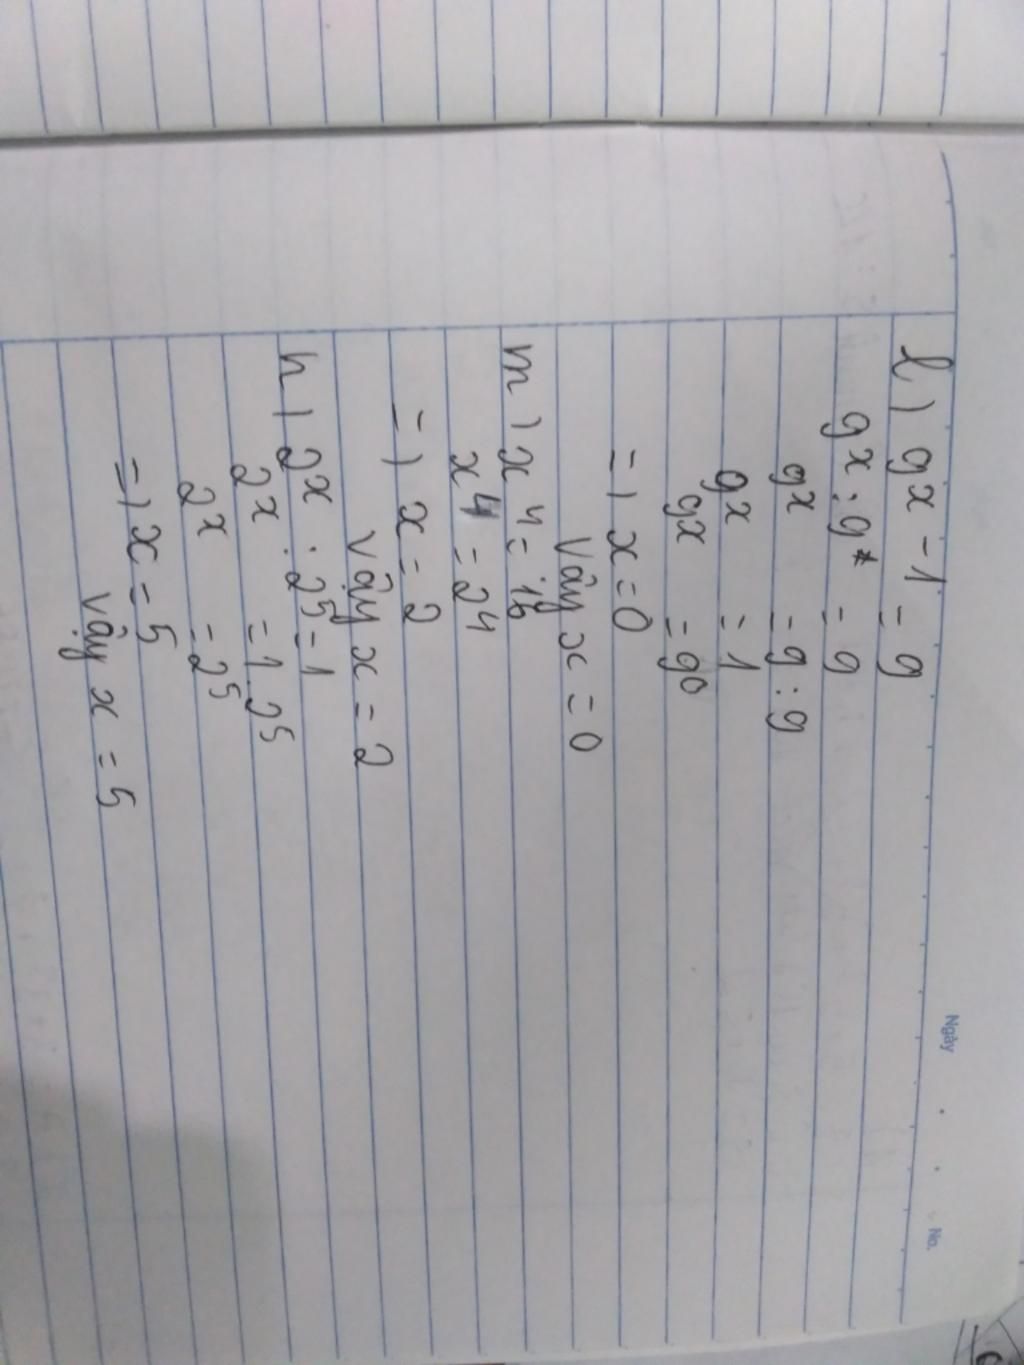 Ngày No.
l) 9^x-1 = 9
9^x : 9* = 9
9^x = 9 : 9
9^x = 1
9^x = 9^0
=) x = 0
Vậy x = 0
m) x^4 = 16
x^4 = 2^4
=) x = 2
Vậy x = 2
n) 2^x : 2^5 = 1
2^x = 1.2^5
2^x = 2^5
=) x = 5
Vậy x = 5